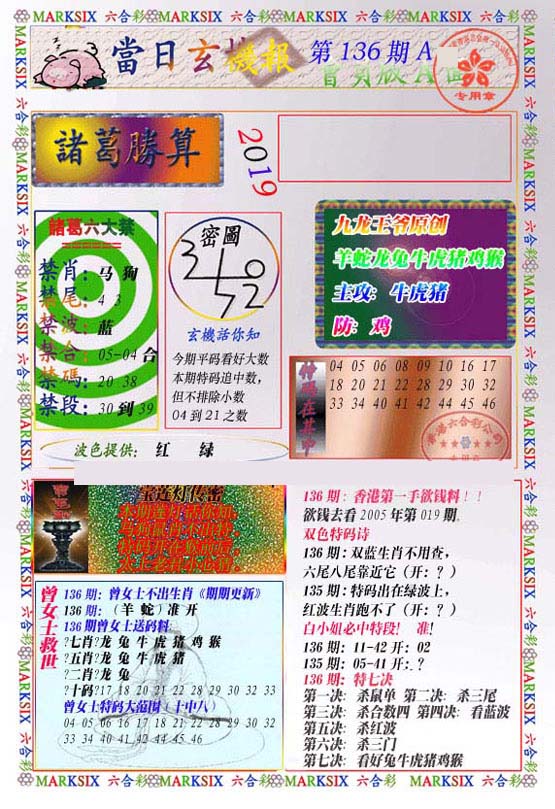 MARKSIX 六合彩 MARKSIX 六合彩 MARKSIX 六合彩 MARKSIX 六合彩
當日玄機报 第136期A
专用章
諸葛勝算
2019
諸葛六大禁
禁肖：马 狗
禁尾：4 3
禁波：蓝
禁合：05-04合
禁碼：20 38
禁段：30到39
密圖
玄機話你知
今期平码看好大数
本期特码追中数，
但不排除小数
04到21之数
九龙王爷原创
羊蛇龙兔牛虎猪鸡猴
主攻：牛虎猪
防：鸡
特碼在其中
04 05 06 08 09 10 16 17
18 20 21 22 28 29 30 32
33 34 40 41 42 44 45 46
波色提供： 红 绿
宝莲灯传密
曾女士救世
136期：曾女士不出生肖《期期更新》
136期：（羊 蛇）准 开
136期曾女士送码料
?七肖?龙 兔 牛 虎 猪 鸡 猴
?五肖?龙 兔 牛 虎 猪
?二肖?龙 兔
?十码?17 18 20 21 22 28 29 30 32 33
曾女士特码大范围（十中八）
04 05 06 16 17 18 21 22 28 29 30 32
33 34 40 41 42 44 45 46
136期：香港第一手欲钱料！！
欲钱去看2005年第019期.
双色特码诗
136期：双蓝生肖不用查，
六尾八尾靠近它（开：？）
135期：特码出在绿波上，
红波生肖跑不了（开：？）
白小姐必中特段！ 准！
136期：11-42 开：02
135期：05-41 开：？
136期：特七决
第一决：杀鼠单 第二决：杀三尾
第三决：杀合数四 第四决：看蓝波
第五决：杀红波
第六决：杀三门
第七决：看好兔牛虎猪鸡猴
MARKSIX 六合彩 MARKSIX 六合彩 MARKSIX 六合彩 MARKSIX 六合彩